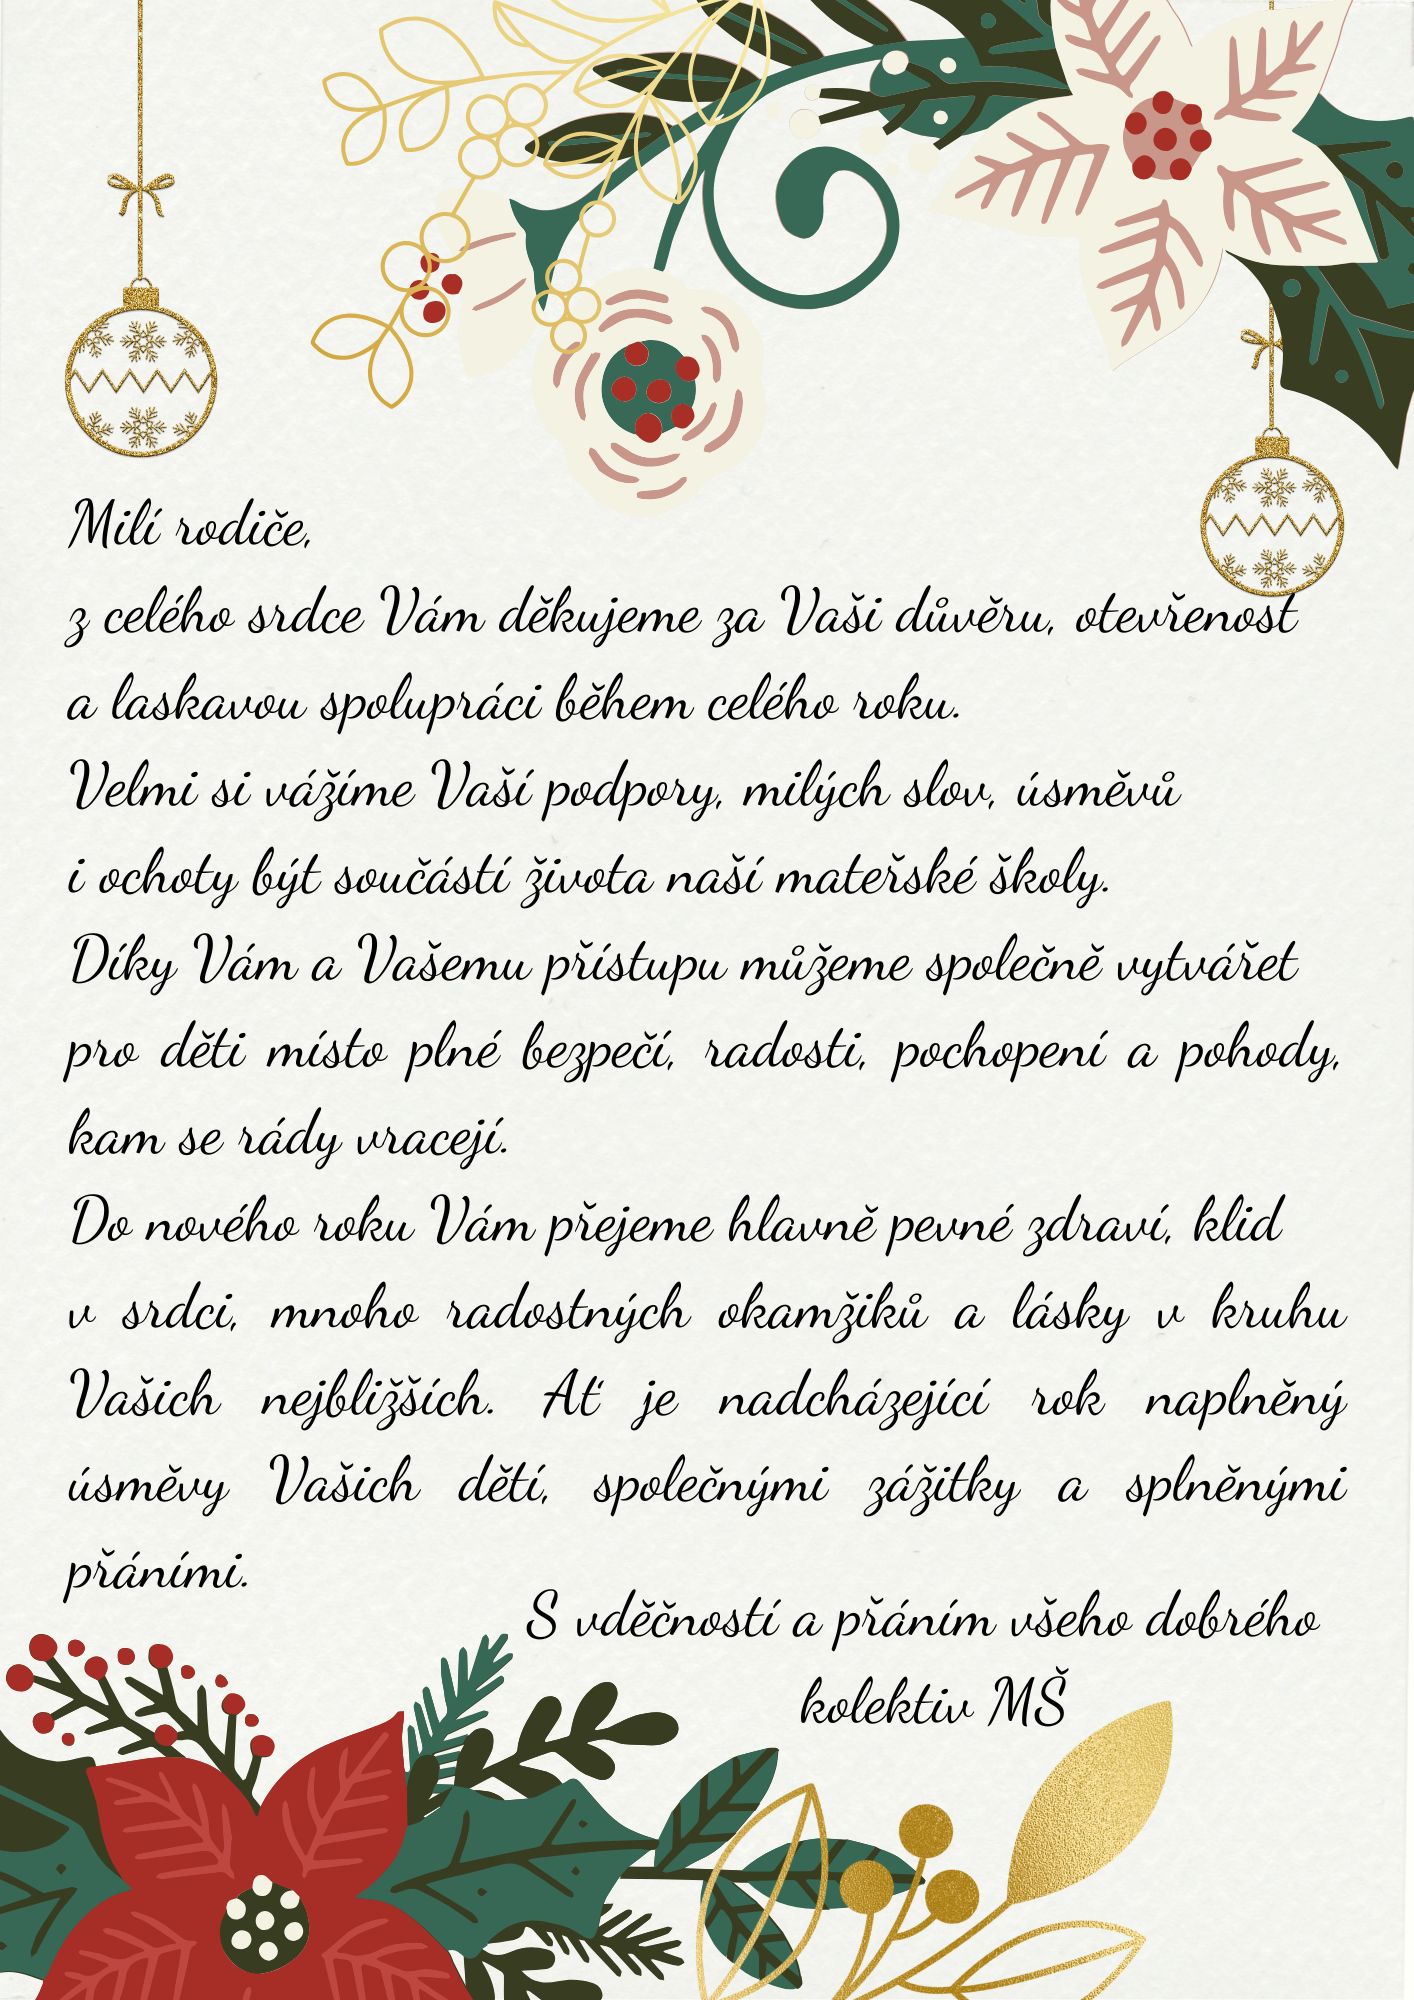 Milí rodiče,
z celého srdce Vám děkujeme za Vaši důvěru, otevřenost
a laskavou spolupráci během celého roku.
Velmi si vážíme Vaší podpory, milých slov, úsměvů
i ochoty být součástí života naší mateřské školy.
Díky Vám a Vašemu přístupu můžeme společně vytvářet
pro děti místo plné bezpečí, radosti, pochopení a pohody,
kam se rády vracejí.
Do nového roku Vám přejeme hlavně pevné zdraví, klid
v srdci, mnoho radostných okamžiků a lásky v kruhu
Vašich nejbližších. Ať je nadcházející rok naplněný
úsměvy Vašich dětí, společnými zážitky a splněnými
přáními.
S vděčností a přáním všeho dobrého
kolektiv MŠ